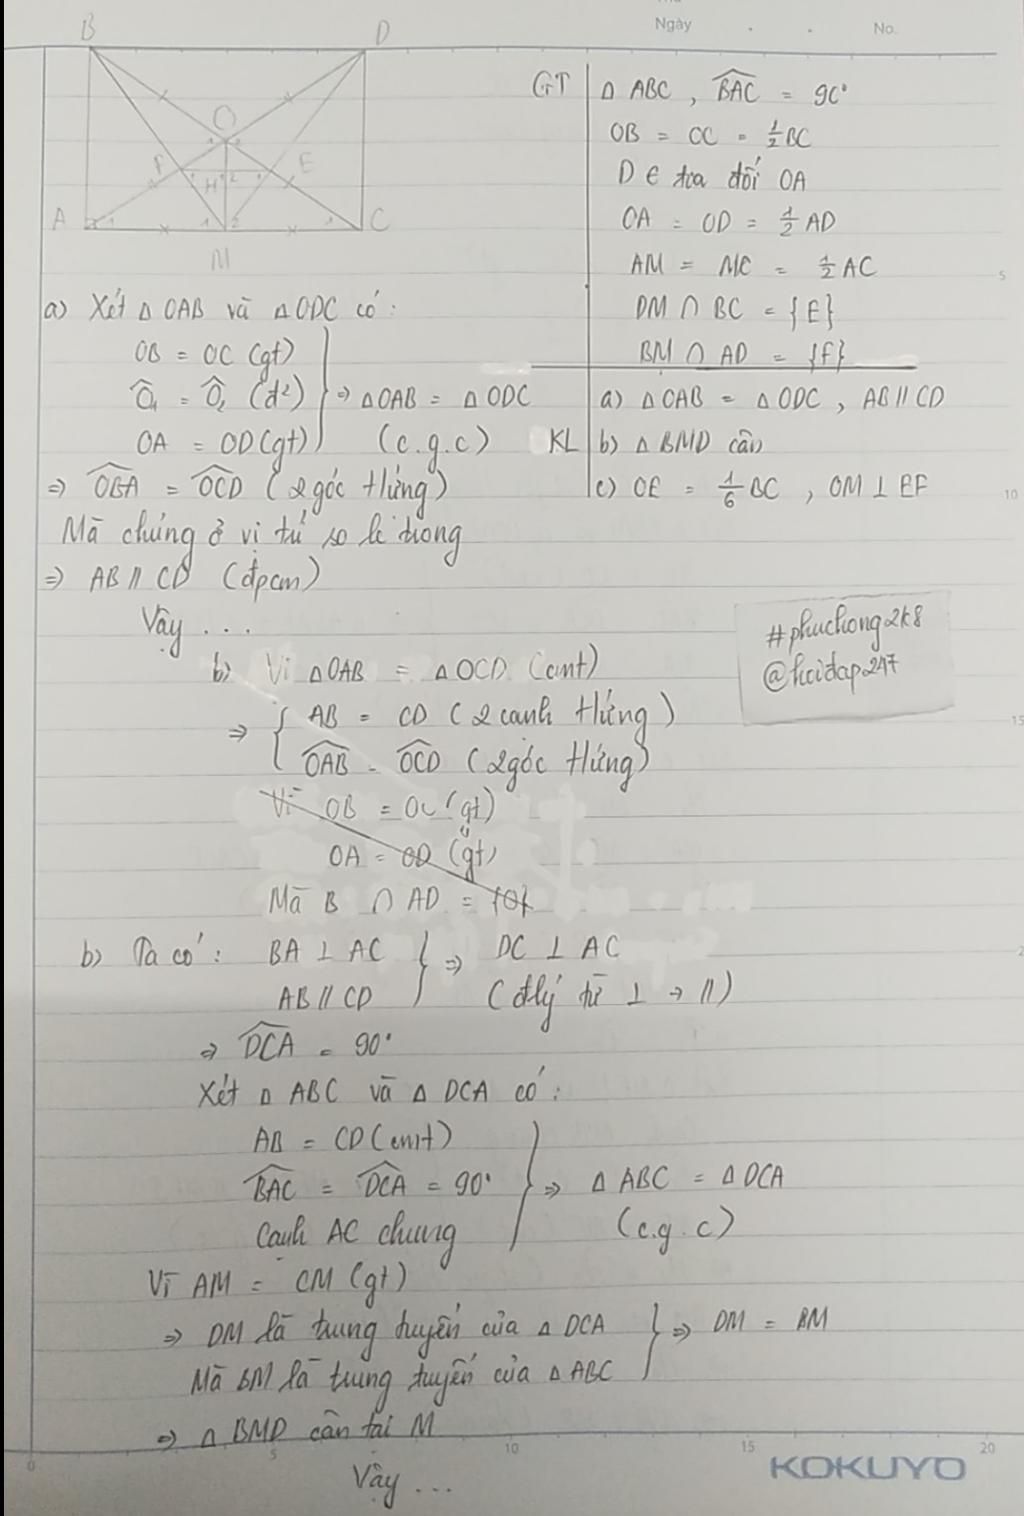 Ngày
No.
B
D
O
F
E
H
A
C
M
GT
Δ ABC, BAC = 90°
OB = OC = 1/2 BC
D ∈ tia đối OA
OA = OD = 1/2 AD
AM = MC = 1/2 AC
DM ∩ BC = {E}
BM ∩ AD = {F}
KL
a) Δ OAB = Δ ODC, AB // CD
b) Δ BMD cân
c) OE = 1/6 BC, OM ⊥ EF
a) Xét Δ OAB và Δ ODC có:
OB = OC (gt)
Ô1 = Ô2 (đ²) } ⇒ Δ OAB = Δ ODC
OA = OD (gt) (c.g.c)
⇒ OBA = OCD (2 góc t/ứng)
Mà chúng ở vị trí so le trong
⇒ AB // CD (đpcm)
Vậy ...
#phuchong2k8
@hoidap247
b) Vì Δ OAB = Δ OCD (cmt)
⇒ { AB = CD (2 cạnh t/ứng)
OAB = OCD (2 góc t/ứng)
Vì OB = OC (gt)
OA = OD (gt)
Mà B ∩ AD = {O}
b) Ta có: BA ⊥ AC } ⇒ DC ⊥ AC
AB // CD (đ/lý từ ⊥ → //)
⇒ DCA = 90°
Xét Δ ABC và Δ DCA có:
AB = CD (cmt)
BAC = DCA = 90° } ⇒ Δ ABC = Δ DCA
Cạnh AC chung (c.g.c)
Vì AM = CM (gt)
⇒ DM là trung tuyến của Δ DCA } ⇒ DM = BM
Mà BM là trung tuyến của Δ ABC
⇒ Δ BMD cân tại M
Vậy ...
KOKUYO
0 5 10 15 20